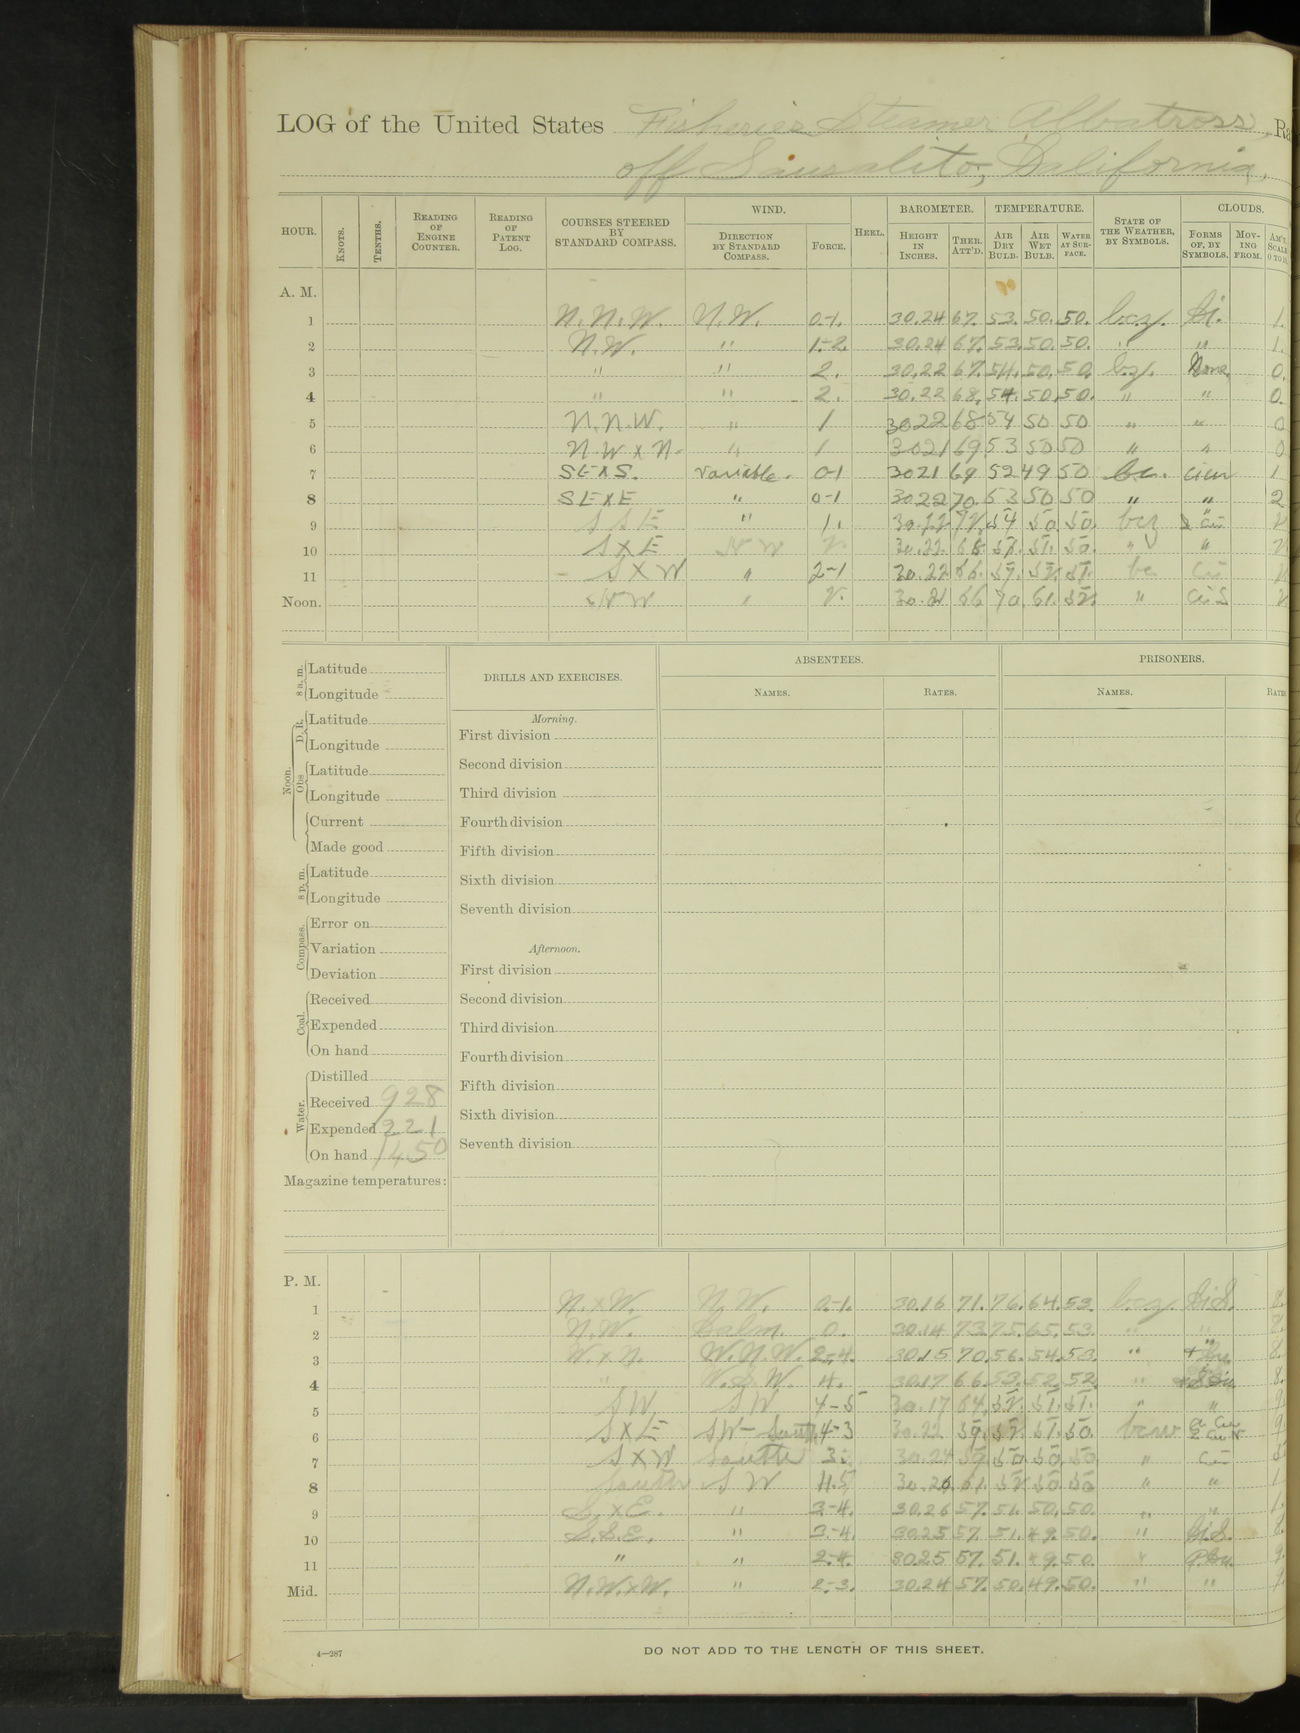 LOG of the United States Fisheries Steamer Albatross, Ra
off Sausalito, California,
HOUR. KNOTS. TENTHS. READING OF ENGINE COUNTER. READING OF PATENT LOG. COURSES STEERED BY STANDARD COMPASS. WIND. DIRECTION BY STANDARD COMPASS. FORCE. HEEL. BAROMETER. HEIGHT IN INCHES. THER. ATT'D. TEMPERATURE. AIR DRY BULB. AIR WET BULB. WATER AT SURFACE. STATE OF THE WEATHER, BY SYMBOLS. CLOUDS. FORMS OF, BY SYMBOLS. MOVING FROM. AM'T, SCALE 0 TO 10.
A. M.
1 N.N.W. N.W. 0-1. 30.24 67. 53. 50. 50. b.c.z. 1.
2 N.W. " 1-2. 30.24 67. 53. 50. 50. " " 1.
3 " " 2. 30.22 67. 54. 50. 50. b.z. None 0.
4 " " 2. 30.22 68. 54. 50. 50. " " 0.
5 N.N.W. " 1 30 22 68 54 50 50 " " 0
6 N.W x N. " 1 30 21 69 53 50 50 " " 0
7 SE x S. Variable. 0-1 30 21 69 52 49 50 bc. 1
8 SE x E " 0-1 30 22 70 53 50 50 " " 2
9 S S E " 1. 30.22 72 54 50 50 bcz
10 S x E N W 30.22 68. 51. 50. " "
11 S x W " 2-1 30.22 66. 51. bc
Noon. " 66 70 61. 52. "
8 a. m. Latitude
Longitude
Noon. D. R. Latitude
Longitude
Obs Latitude
Longitude
Current
Made good
8 p. m. Latitude
Longitude
Compass. Error on
Variation
Deviation
Coal. Received
Expended
On hand
Water. Distilled
Received 928
Expended 221
On hand 1450
Magazine temperatures:
DRILLS AND EXERCISES.
Morning.
First division
Second division
Third division
Fourth division
Fifth division
Sixth division
Seventh division
Afternoon.
First division
Second division
Third division
Fourth division
Fifth division
Sixth division
Seventh division
ABSENTEES.
NAMES. RATES.
PRISONERS.
NAMES. RATES
P. M.
1 N. x W. N.W. 0-1. 30.16 71. 76. 64. 53. b.c.z. 8.
2 N.W. Calm. 0. 30.14 73. 75. 65. 53. " "
3 W. x N. W.N.W. 2-4. 30.15 70. 56. 54. 53. " 8.
4 " W.S.W. 4. 30.17 66. 53. 52. 52. " 8.
5 SW SW 4-5 30.17 64. 52. 51. 51. " "
6 S x E SW - South 4-3 30.22 59. 52. 51. 50.
7 S x W South 3. 30.24 59 50 50 50 "
8 South S W 4.5 30.26 61. 52 50 50 " "
9 S. x E. " 3-4. 30.26 57. 51. 50. 50. " " 1.
10 S.S.E. " 3-4. 30.25 57. 51. 49. 50. "
11 " " 2-4. 30.25 57. 51. 49. 50. "
Mid. N.W. x W. " 2-3. 30.24 57. 50. 49. 50. " "
4—287
DO NOT ADD TO THE LENGTH OF THIS SHEET.